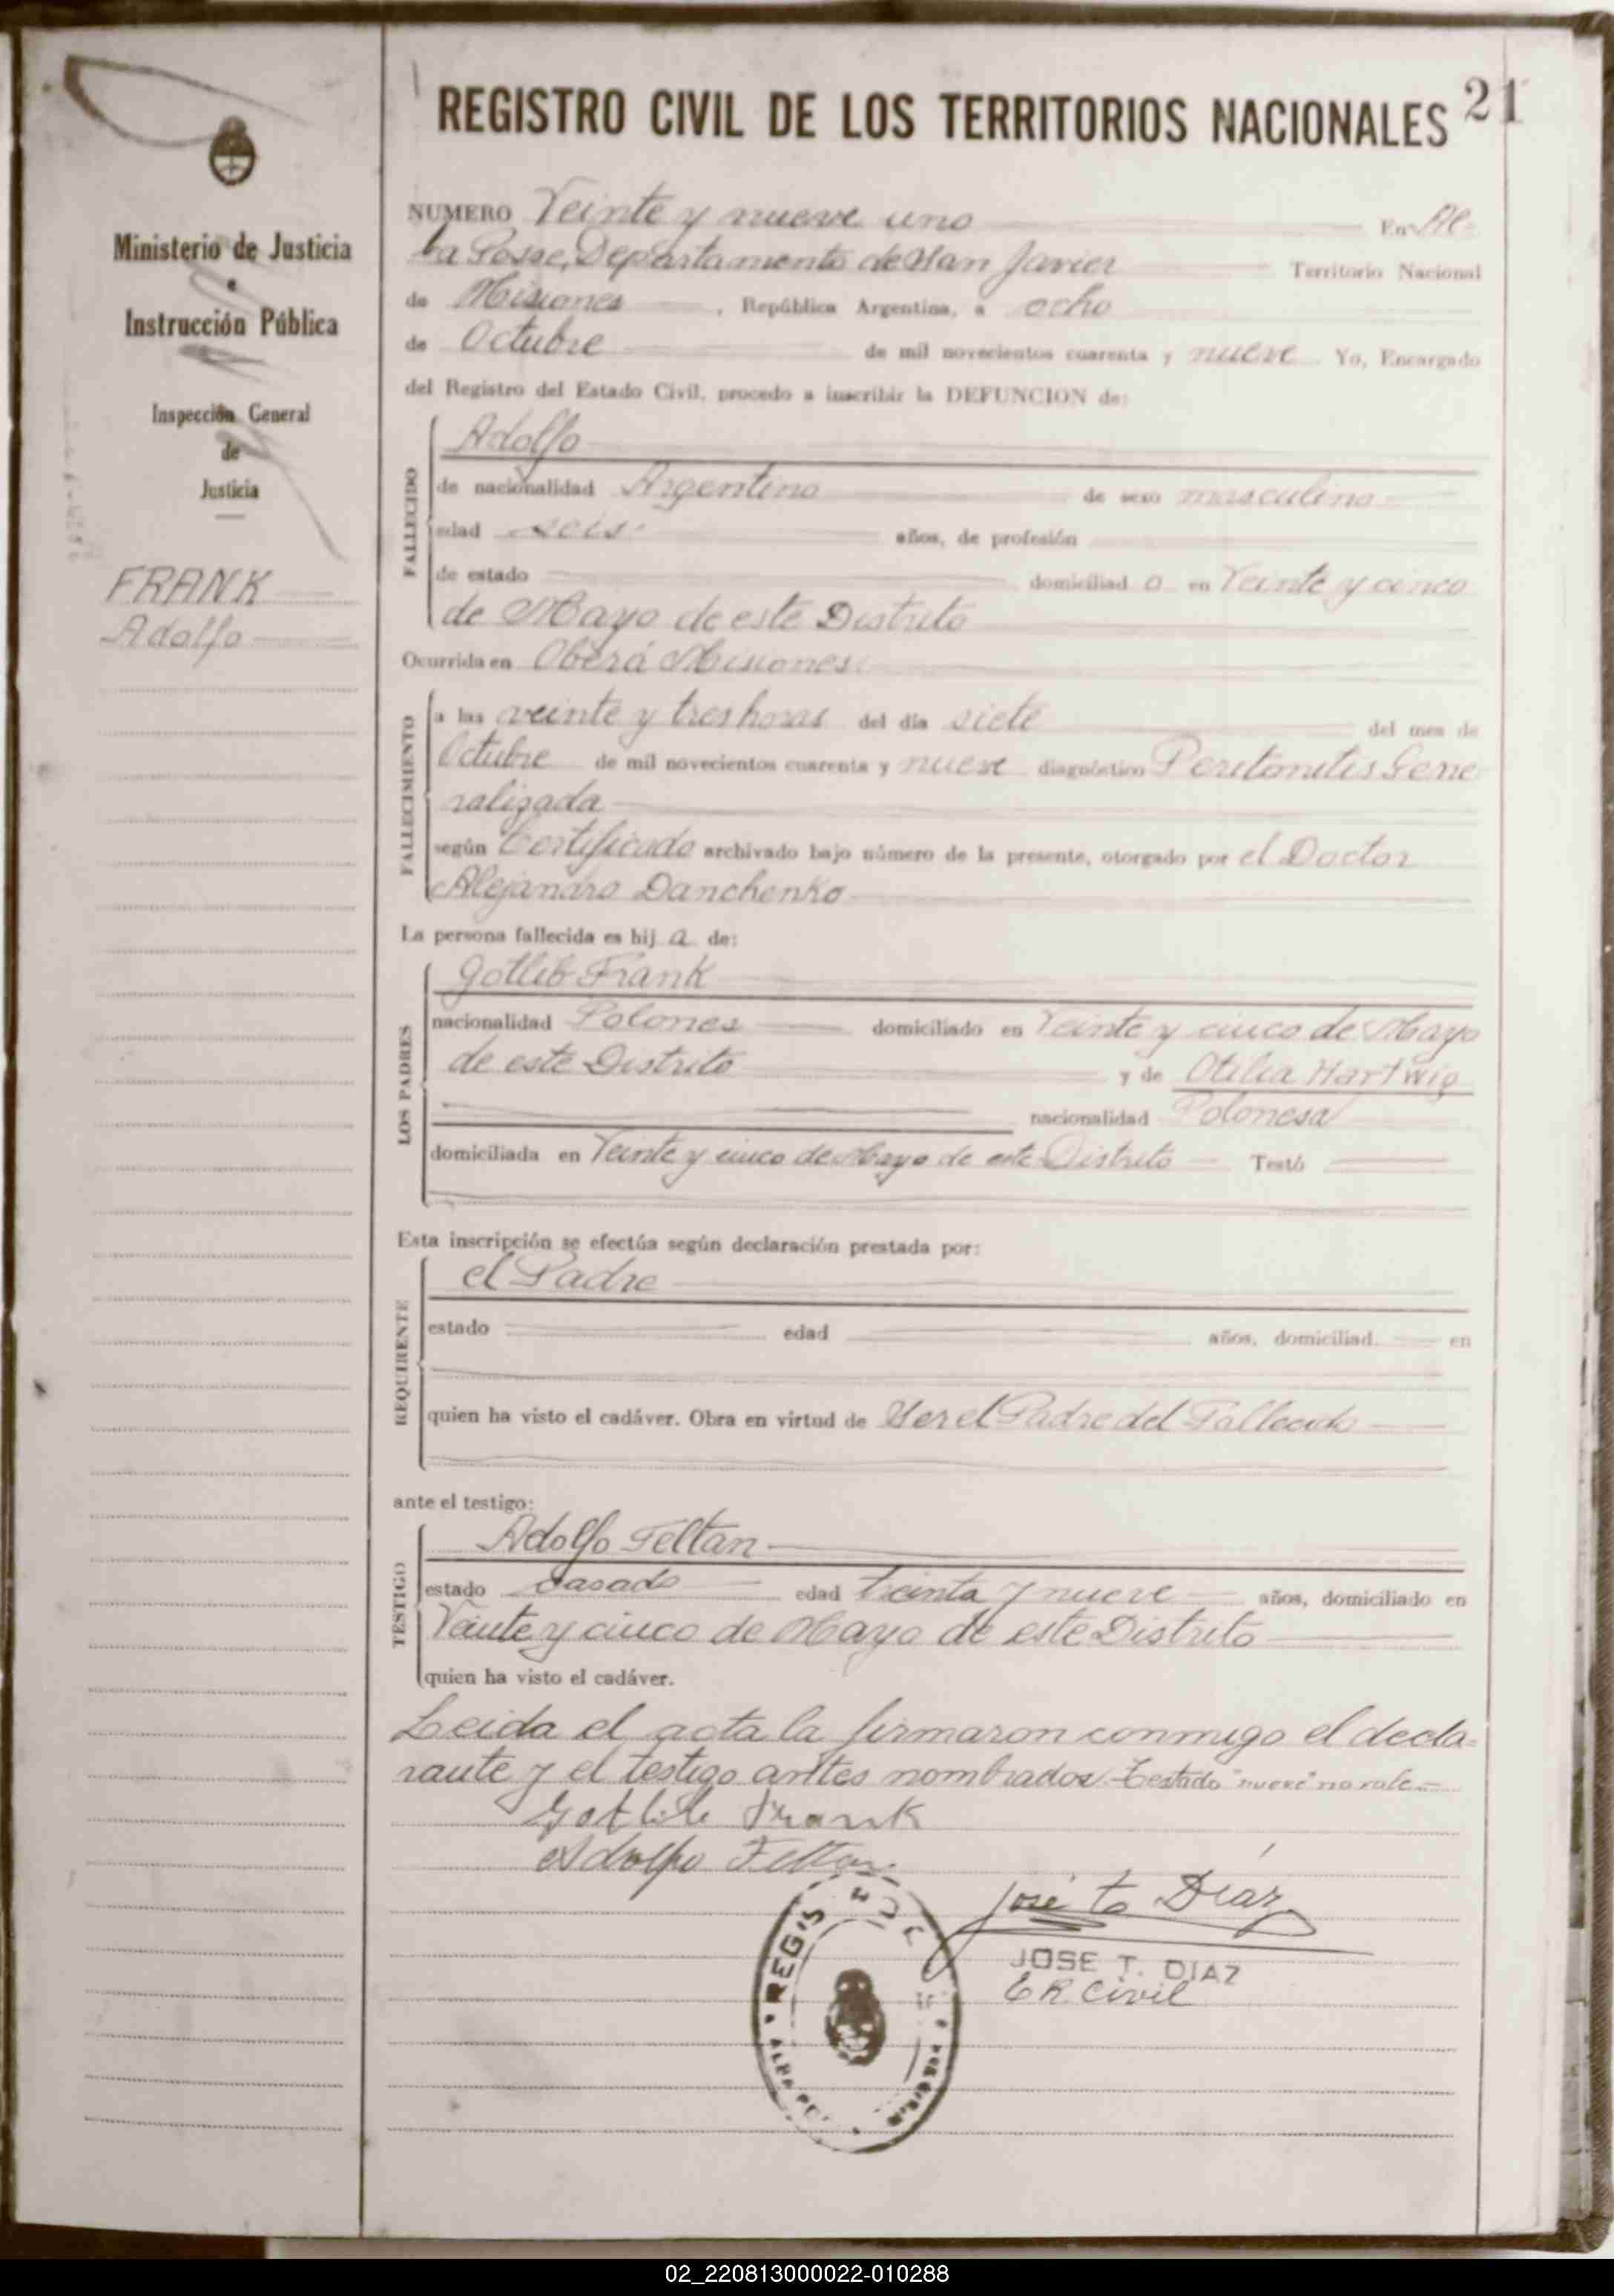 REGISTRO CIVIL DE LOS TERRITORIOS NACIONALES 21
Ministerio de Justicia
e
Instrucción Pública
Inspección General
de
Justicia
FRANK
Adolfo
NUMERO Veinte y nueve uno En Al-
ba Posse, Departamento de San Javier Territorio Nacional
de Misiones, República Argentina, a ocho
de Octubre de mil novecientos cuarenta y nueve. Yo, Encargado
del Registro del Estado Civil, procedo a inscribir la DEFUNCION de:
FALLECIDO
Adolfo
de nacionalidad Argentino de sexo masculino
edad seis años, de profesión
de estado domiciliad o en Veinte y cinco
de Mayo de este Distrito
Ocurrida en Oberá Misiones
FALLECIMIENTO
a las veinte y tres horas del día siete del mes de
Octubre de mil novecientos cuarenta y nueve diagnóstico Peritonitis Gene
ralizada
según Certificado archivado bajo número de la presente, otorgado por el Doctor
Alejandro Danchenko
La persona fallecida es hij a de:
LOS PADRES
Gotlib Frank
nacionalidad Polones domiciliado en Veinte y cinco de Mayo
de este Distrito y de Otilia Hartwig
nacionalidad Polonesa
domiciliada en Veinte y cinco de Mayo de este Distrito Testó
Esta inscripción se efectúa según declaración prestada por:
REQUIRENTE
el Padre
estado edad años, domiciliad. en
quien ha visto el cadáver. Obra en virtud de Ser el Padre del Fallecido
ante el testigo:
TESTIGO
Adolfo Feltan
estado Casado edad treinta y nueve años, domiciliado en
Veinte y cinco de Mayo de este Distrito
quien ha visto el cadáver.
Leida el acta la firmaron conmigo el decla-
rante y el testigo antes nombrados. Testado "nueve" no vale
Gotlib Frank
Adolfo Feltan
José T. Diaz
JOSE T. DIAZ
E R. Civil
REGIS
ALBA PO
02_220813000022-010288